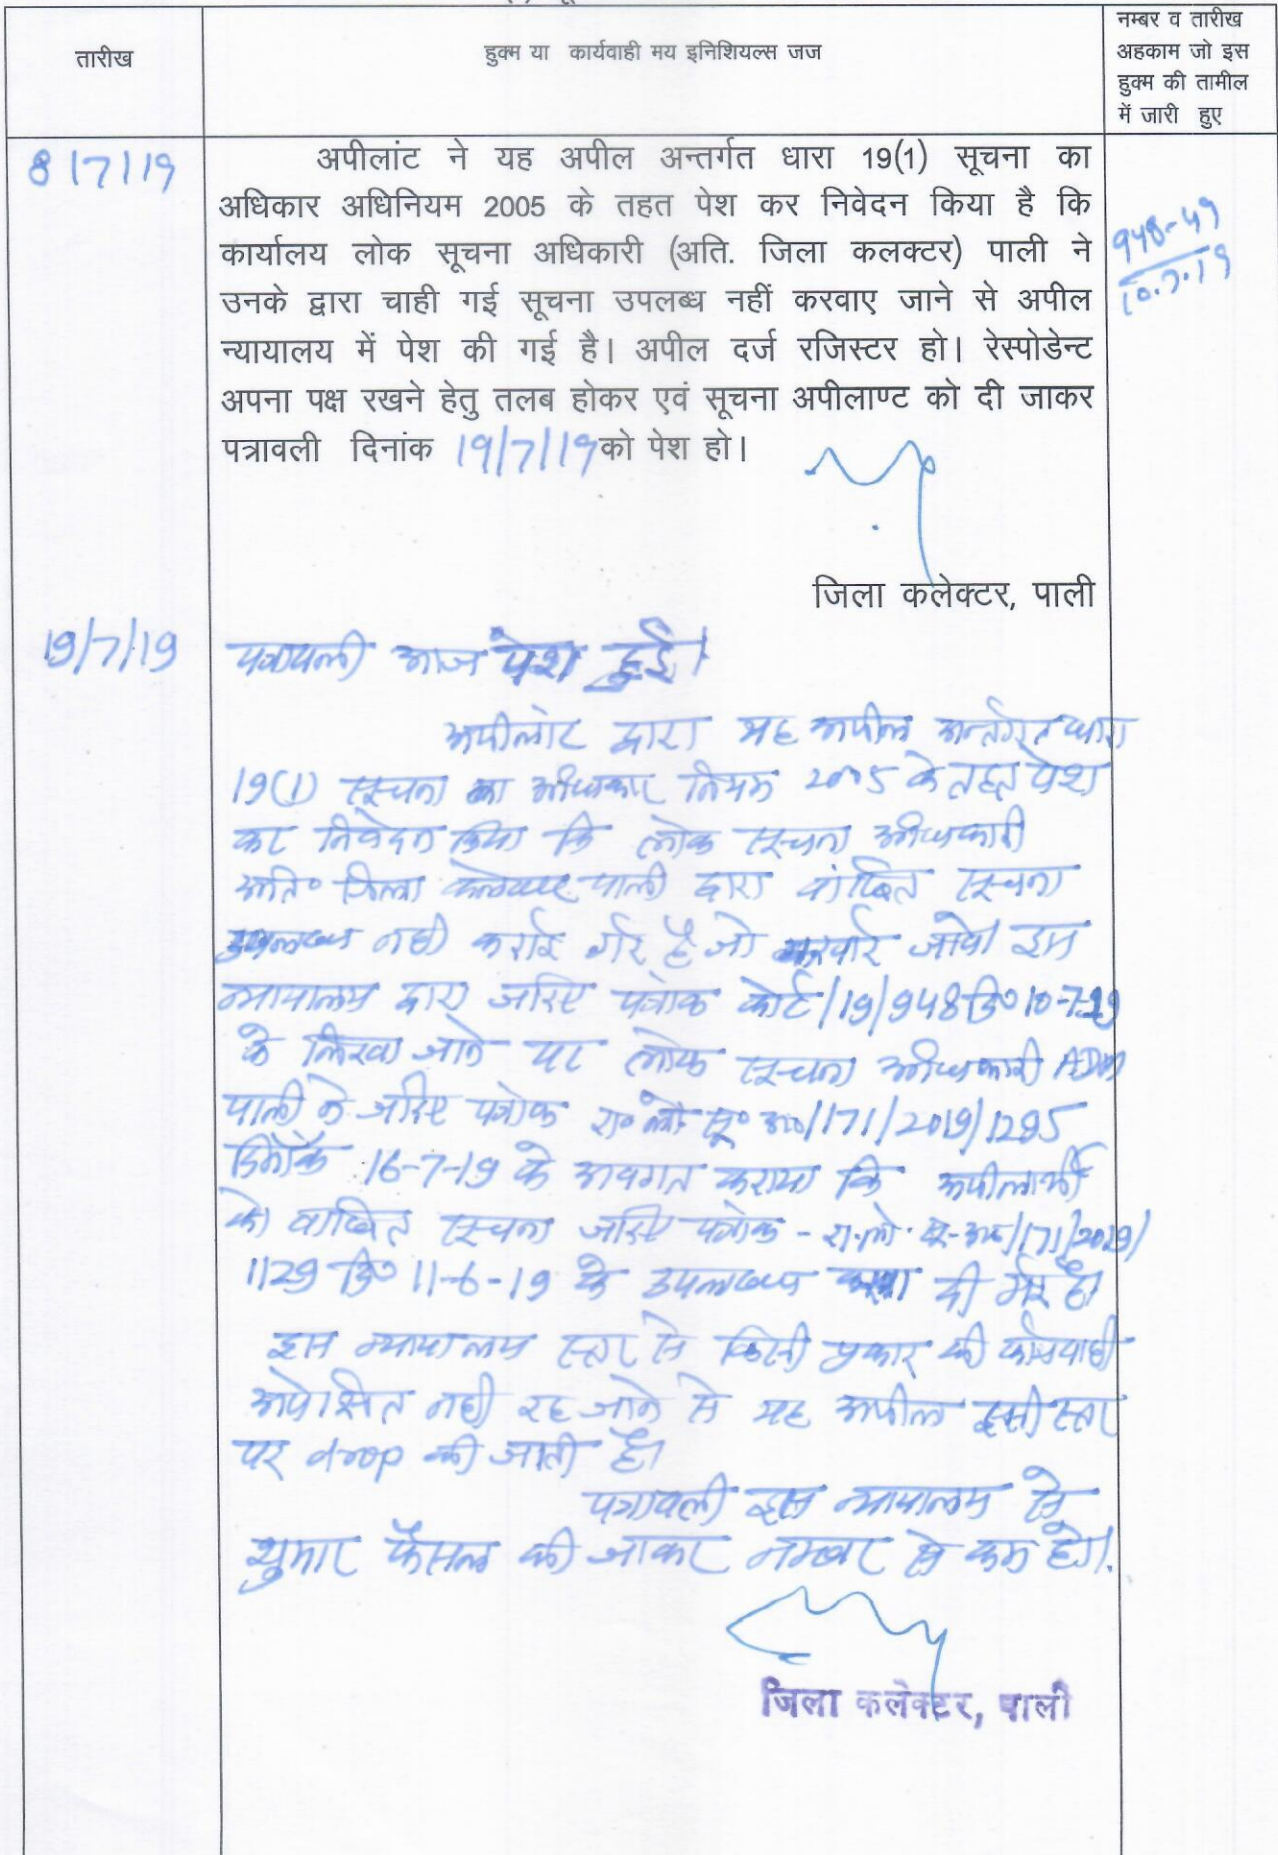 तारीख
हुक्म या कार्यवाही मय इनिशियल्स जज
नम्बर व तारीख
अहकाम जो इस
हुक्म की तामील
में जारी हुए
8/7/19
अपीलांट ने यह अपील अन्तर्गत धारा 19(1) सूचना का
अधिकार अधिनियम 2005 के तहत पेश कर निवेदन किया है कि
कार्यालय लोक सूचना अधिकारी (अति. जिला कलक्टर) पाली ने
उनके द्वारा चाही गई सूचना उपलब्ध नहीं करवाए जाने से अपील
न्यायालय में पेश की गई है। अपील दर्ज रजिस्टर हो। रेस्पोडेन्ट
अपना पक्ष रखने हेतु तलब होकर एवं सूचना अपीलाण्ट को दी जाकर
पत्रावली दिनांक 19/7/19 को पेश हो।
948-49
10.7.19
जिला कलेक्टर, पाली
19/7/19
पत्रावली आज पेश हुई।
अपीलांट द्वारा यह अपील अन्तर्गत धारा
19(1) सूचना का अधिकार नियम 2005 के तहत पेश
कर निवेदन किया कि लोक सूचना अधिकारी
अति० जिला कलेक्टर पाली द्वारा वांछित सूचना
उपलब्ध नही कराई गई है जो करवाई जावे। इस
न्यायालय द्वारा जरिए पत्रांक कोर्ट/19/948 दि० 10-7-19
के लिखा जाने पर लोक सूचना अधिकारी ADM
पाली ने जरिए पत्रांक रा० लो० सू० अ०/171/2019/1295
दिनांक 16-7-19 के अवगत कराया कि अपीलार्थी
को वांछित सूचना जरिए पत्रांक - रा.लो. सू.अ/171/2019/
1129 दि० 11-6-19 के उपलब्ध करवा दी गई है।
इस न्यायालय स्तर से किसी प्रकार की कार्यवाही
अपेक्षित नही रह जाने से यह अपील इसी स्तर
पर drop की जाती है।
पत्रावली इस न्यायालय से
शुमार फैसल की जाकर नम्बर से कम हो।
जिला कलेक्टर, पाली